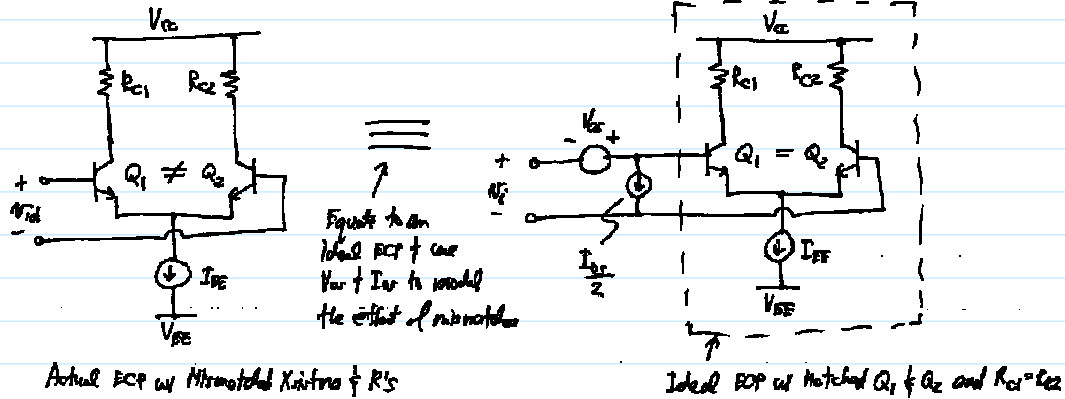 V_CC
R_C1 R_C2
Q_1 ≠ Q_2
+
v_id
-
I_EE
V_EE
Actual ECP w/ Mismatched Xsistors & R's
≡
Equate to an
Ideal ECP & use
V_os & I_os to model
the effect of mismatches
V_CC
R_C1 R_C2
- V_os +
Q_1 = Q_2
+
v_i
-
I_os
2
I_EE
V_EE
Ideal ECP w/ Matched Q_1 & Q_2 and R_C1 = R_C2